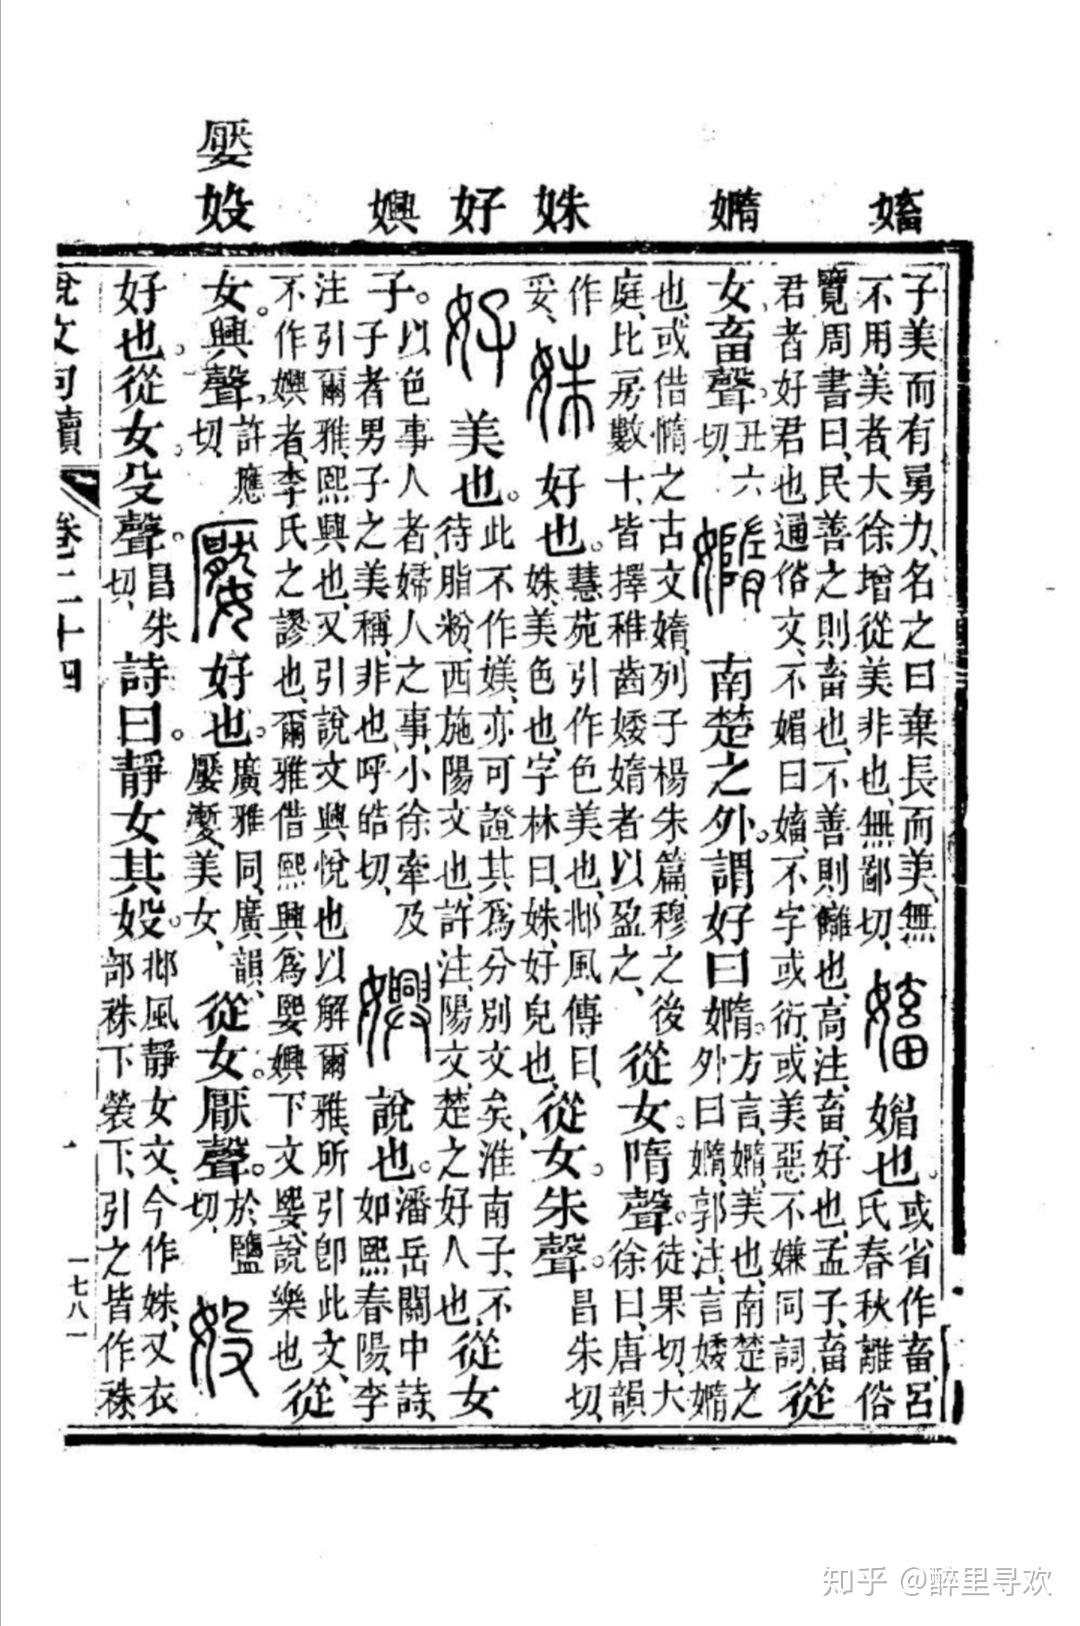 㜅
嫷
姝
好
嬹
嬮
㚫
子美而有勇力、名之曰棄、長而美、無
不用美者、大徐增從美非也、無鄙切、
㜅
媚也。
或省作畜、呂
氏春秋離俗
覽周書曰、民善之則畜也、不善則讎也、高注、畜、好也、孟子、畜
君者好君也、通俗文、不媚曰㜅、不字或衍、或美惡不嫌同詞、
從
女畜聲。
丑六
切、
嫷
南楚之外謂好曰嫷。
方言、嫷、美也、南楚之
外曰嫷、郭注、言婑嫷
也、或借惰之古文媠、列子楊朱篇、穆之後
庭、比房數十、皆擇稚齒婑媠者以盈之、
從女。隋聲。
徒果切、大
徐曰、唐韻
作
妥、
姝
好也。
慧苑引作色美也、邶風傳曰、
姝、美色也、字林曰、姝、好皃也、
從女。朱聲。
昌朱切、
好
美也。
此不作媄、亦可證其爲分別文矣、淮南子、不
待脂粉、西施陽文也、許注、陽文、楚之好人也、
從女
子。
以色事人者、婦人之事、小徐牽及
子者男子之美稱、非也、呼皓切、
嬹
說也。
潘岳關中詩、
如熙春陽、李
注引爾雅、熙興也、又引說文興悅也、以解爾雅、所引卽此文、
不作嬹者、李氏之謬也、爾雅借熙興爲媐嬹、下文媐、說樂也
從
女。興聲。
許應
切、
嬮
好也。
廣雅同、廣韻、
嬮㜝、美女、
從女。厭聲。
於鹽
切、
㚫
好也。從女。殳聲。
昌朱
切、
詩曰。靜女其㚫。
邶風靜女文、今作姝、又衣
部袾下裳下、引之皆作袾
說文句讀 卷二十四
一七八一
知乎 @醉里寻欢